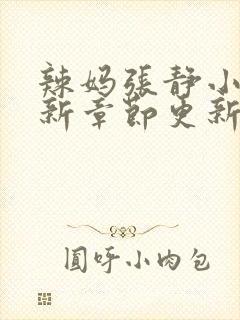 辣妈張静小
新章節更新
圓呼小肉包